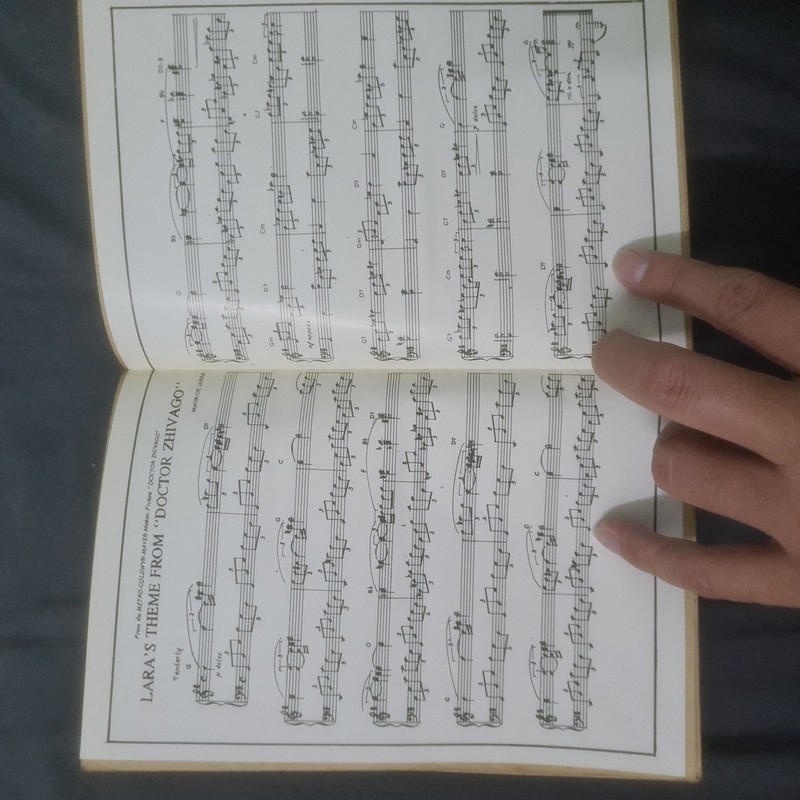 From the METRO-GOLDWYN-MAYER Motion Picture "DOCTOR ZHIVAGO"
LARA'S THEME FROM "DOCTOR ZHIVAGO"
MAURICE JARRE
Tenderly
G D7
p dolce
G C
G Bb F Bb D7
G D7
G C
G Bb F Bb D7-9
Gm D7 Cm G7 Cm
mf espress
G7 D7 Gm D7 Cm
G7 Cm G7 D7 G
p dolce
D7 G
rit. e dim. pp